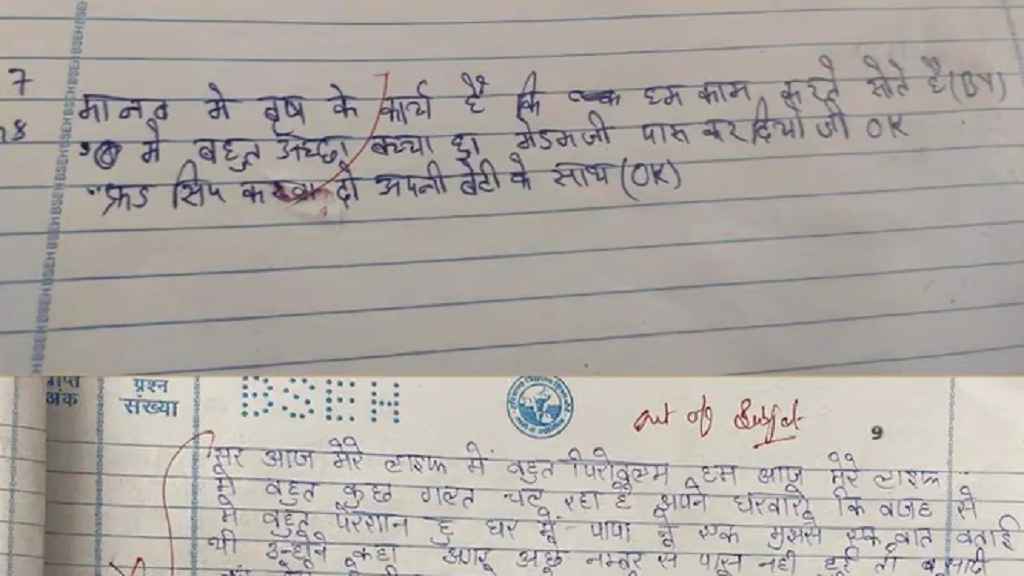 7 मानव मे वृष के कार्य है कि हम काम करते सोते है (
18 मे बहुत अच्छा बच्चा हा मेडमजी पास कर दियो जी OK
"फ्रड सिप करवा दो अपनी बेटी के साथ (OK)
BSEH
प्राप्त अंक
प्रश्न संख्या
BSEH
out of Subject
9
सर आज मेरे लाइफ में बहुत पिरोबलम हम आज मेरे लाइफ
मे बहुत कुछ गलत चल रहा है अपने घरवालो कि वजह से
मे बहुत परेशान हु घर में पापा ने एक मुझसे एक बात बताई
थी उन्होने कहा अगर अच्छे नम्बर से पास नही हुई तो